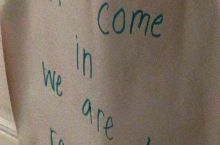 come
in
we are